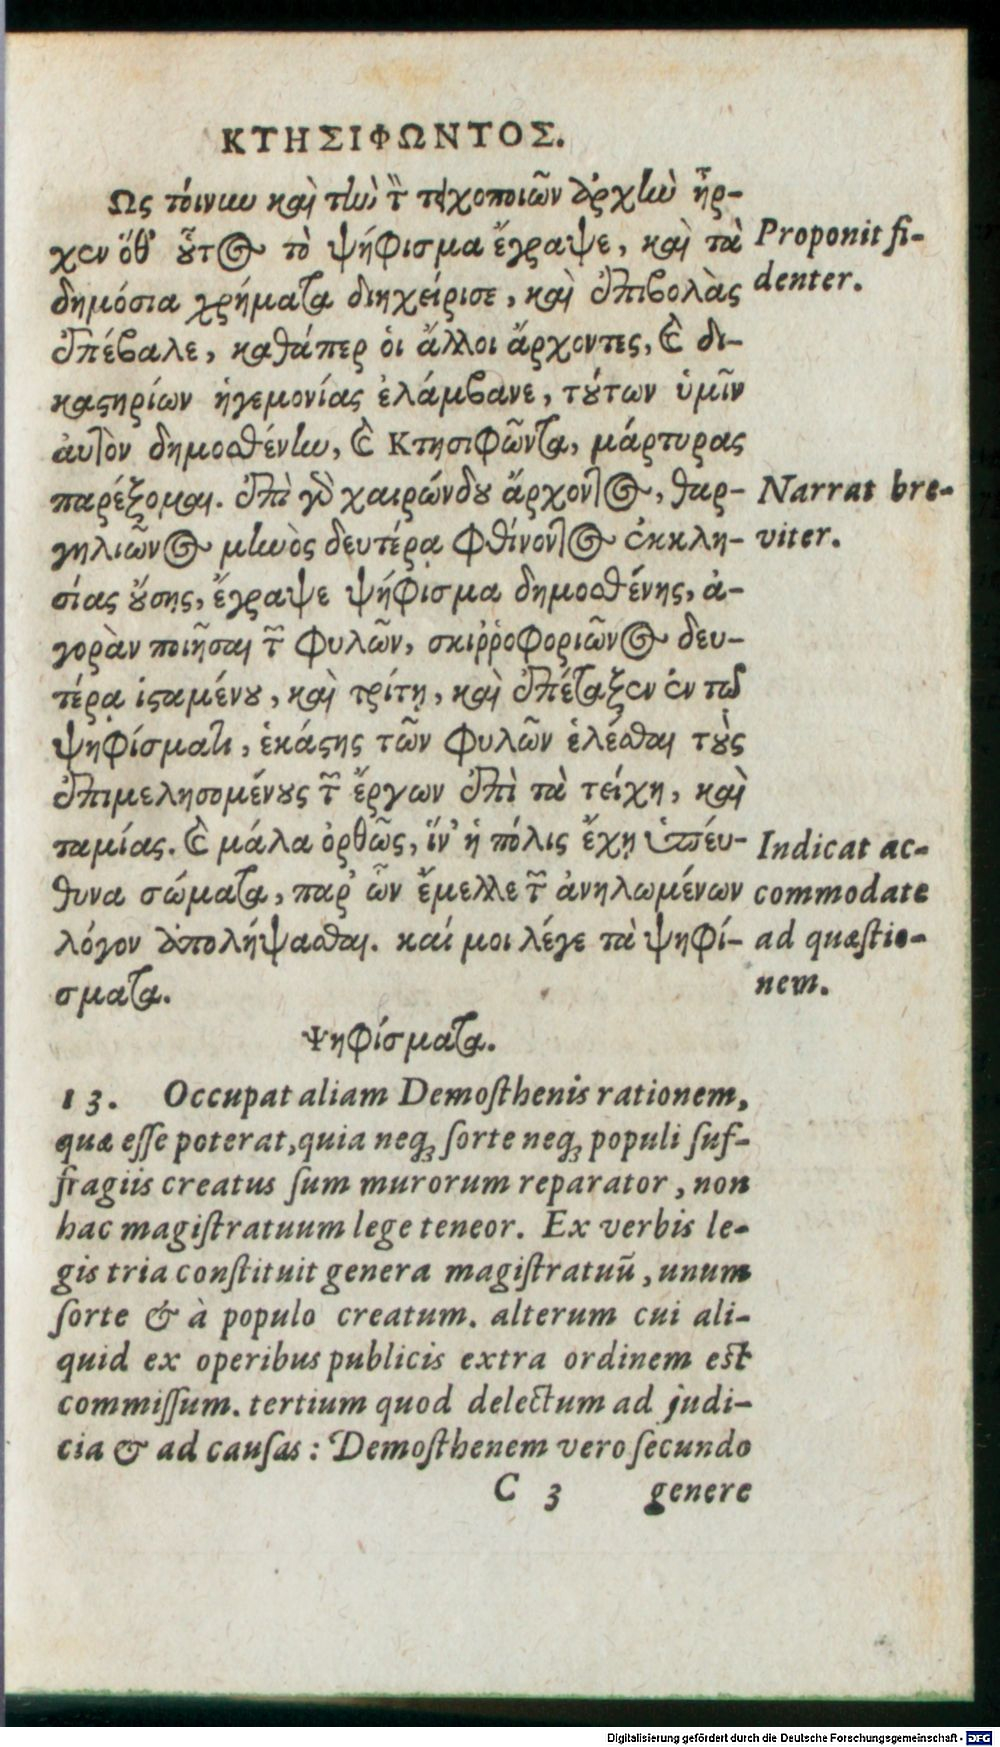 ΚΤΗΣΙΦΩΝΤΟΣ.
Ως τοίνυν καὶ τὴν τ̃ τειχοποιῶν ἀρχὴν ἦρ-
χεν ὅθ' οὗτος τὸ ψήφισμα ἔγραψε, καὶ τὰ
Proponit fi-
denter.
δημόσια χρήματα διηχείρισε, καὶ ἐπιβολὰς
ἐπέβαλε, καθάπερ ὁι ἄλλοι ἄρχοντες, καὶ δι-
καστηρίων ἡγεμονίας ἐλάμβανε, τούτων ὑμῖν
αὐτὸν δημοσθένην, καὶ Κτησιφῶντα, μάρτυρας
παρέξομαι. ἐπὶ γὸ χαιρώνδου ἄρχοντος, θαρ-
Narrat bre-
γηλιῶνος μηνὸς δευτέρᾳ φθίνοντος ἐκκλη-
viter.
σίας οὔσης, ἔγραψε ψήφισμα δημοσθένης, ἀ-
γορὰν ποιῆσαι τ̃ φυλῶν, σκιῤῥοφοριῶνος δευ-
τέρᾳ ἱσταμένου, καὶ τρίτῃ, καὶ ἐπέταξεν ἐν τῷ
ψηφίσματι, ἑκάστης τῶν φυλῶν ἑλέσθαι τοὺς
ἐπιμελησομένους τ̃ ἔργων ἐπὶ τὰ τείχη, καὶ
ταμίας. καὶ μάλα ὀρθῶς, ἵν' ἡ πόλις ἔχῃ ὑπεύ-
Indicat ac-
θυνα σώματα, παρ' ὧν ἔμελλε τ̃ ἀνηλωμένων
commodate
λόγον ἀπολήψασθαι. καί μοι λέγε τὰ ψηφί-
ad quæstio-
σματα.
nem.
Ψηφίσματα.
13. Occupat aliam Demosthenis rationem,
quæ esse poterat, quia neq; sorte neq; populi suf-
fragiis creatus sum murorum reparator, non
hac magistratuum lege teneor. Ex verbis le-
gis tria constituit genera magistratuũ, unum
sorte & à populo creatum. alterum cui ali-
quid ex operibus publicis extra ordinem est
commissum. tertium quod delectum ad judi-
cia & ad causas: Demosthenem vero secundo
C 3 genere
Digitalisierung gefördert durch die Deutsche Forschungsgemeinschaft - DFG